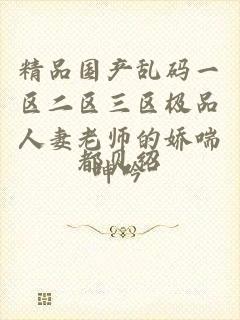 精品国产乱码一
区二区三区极品
人妻老师的娇喘
呻吟
都见绍